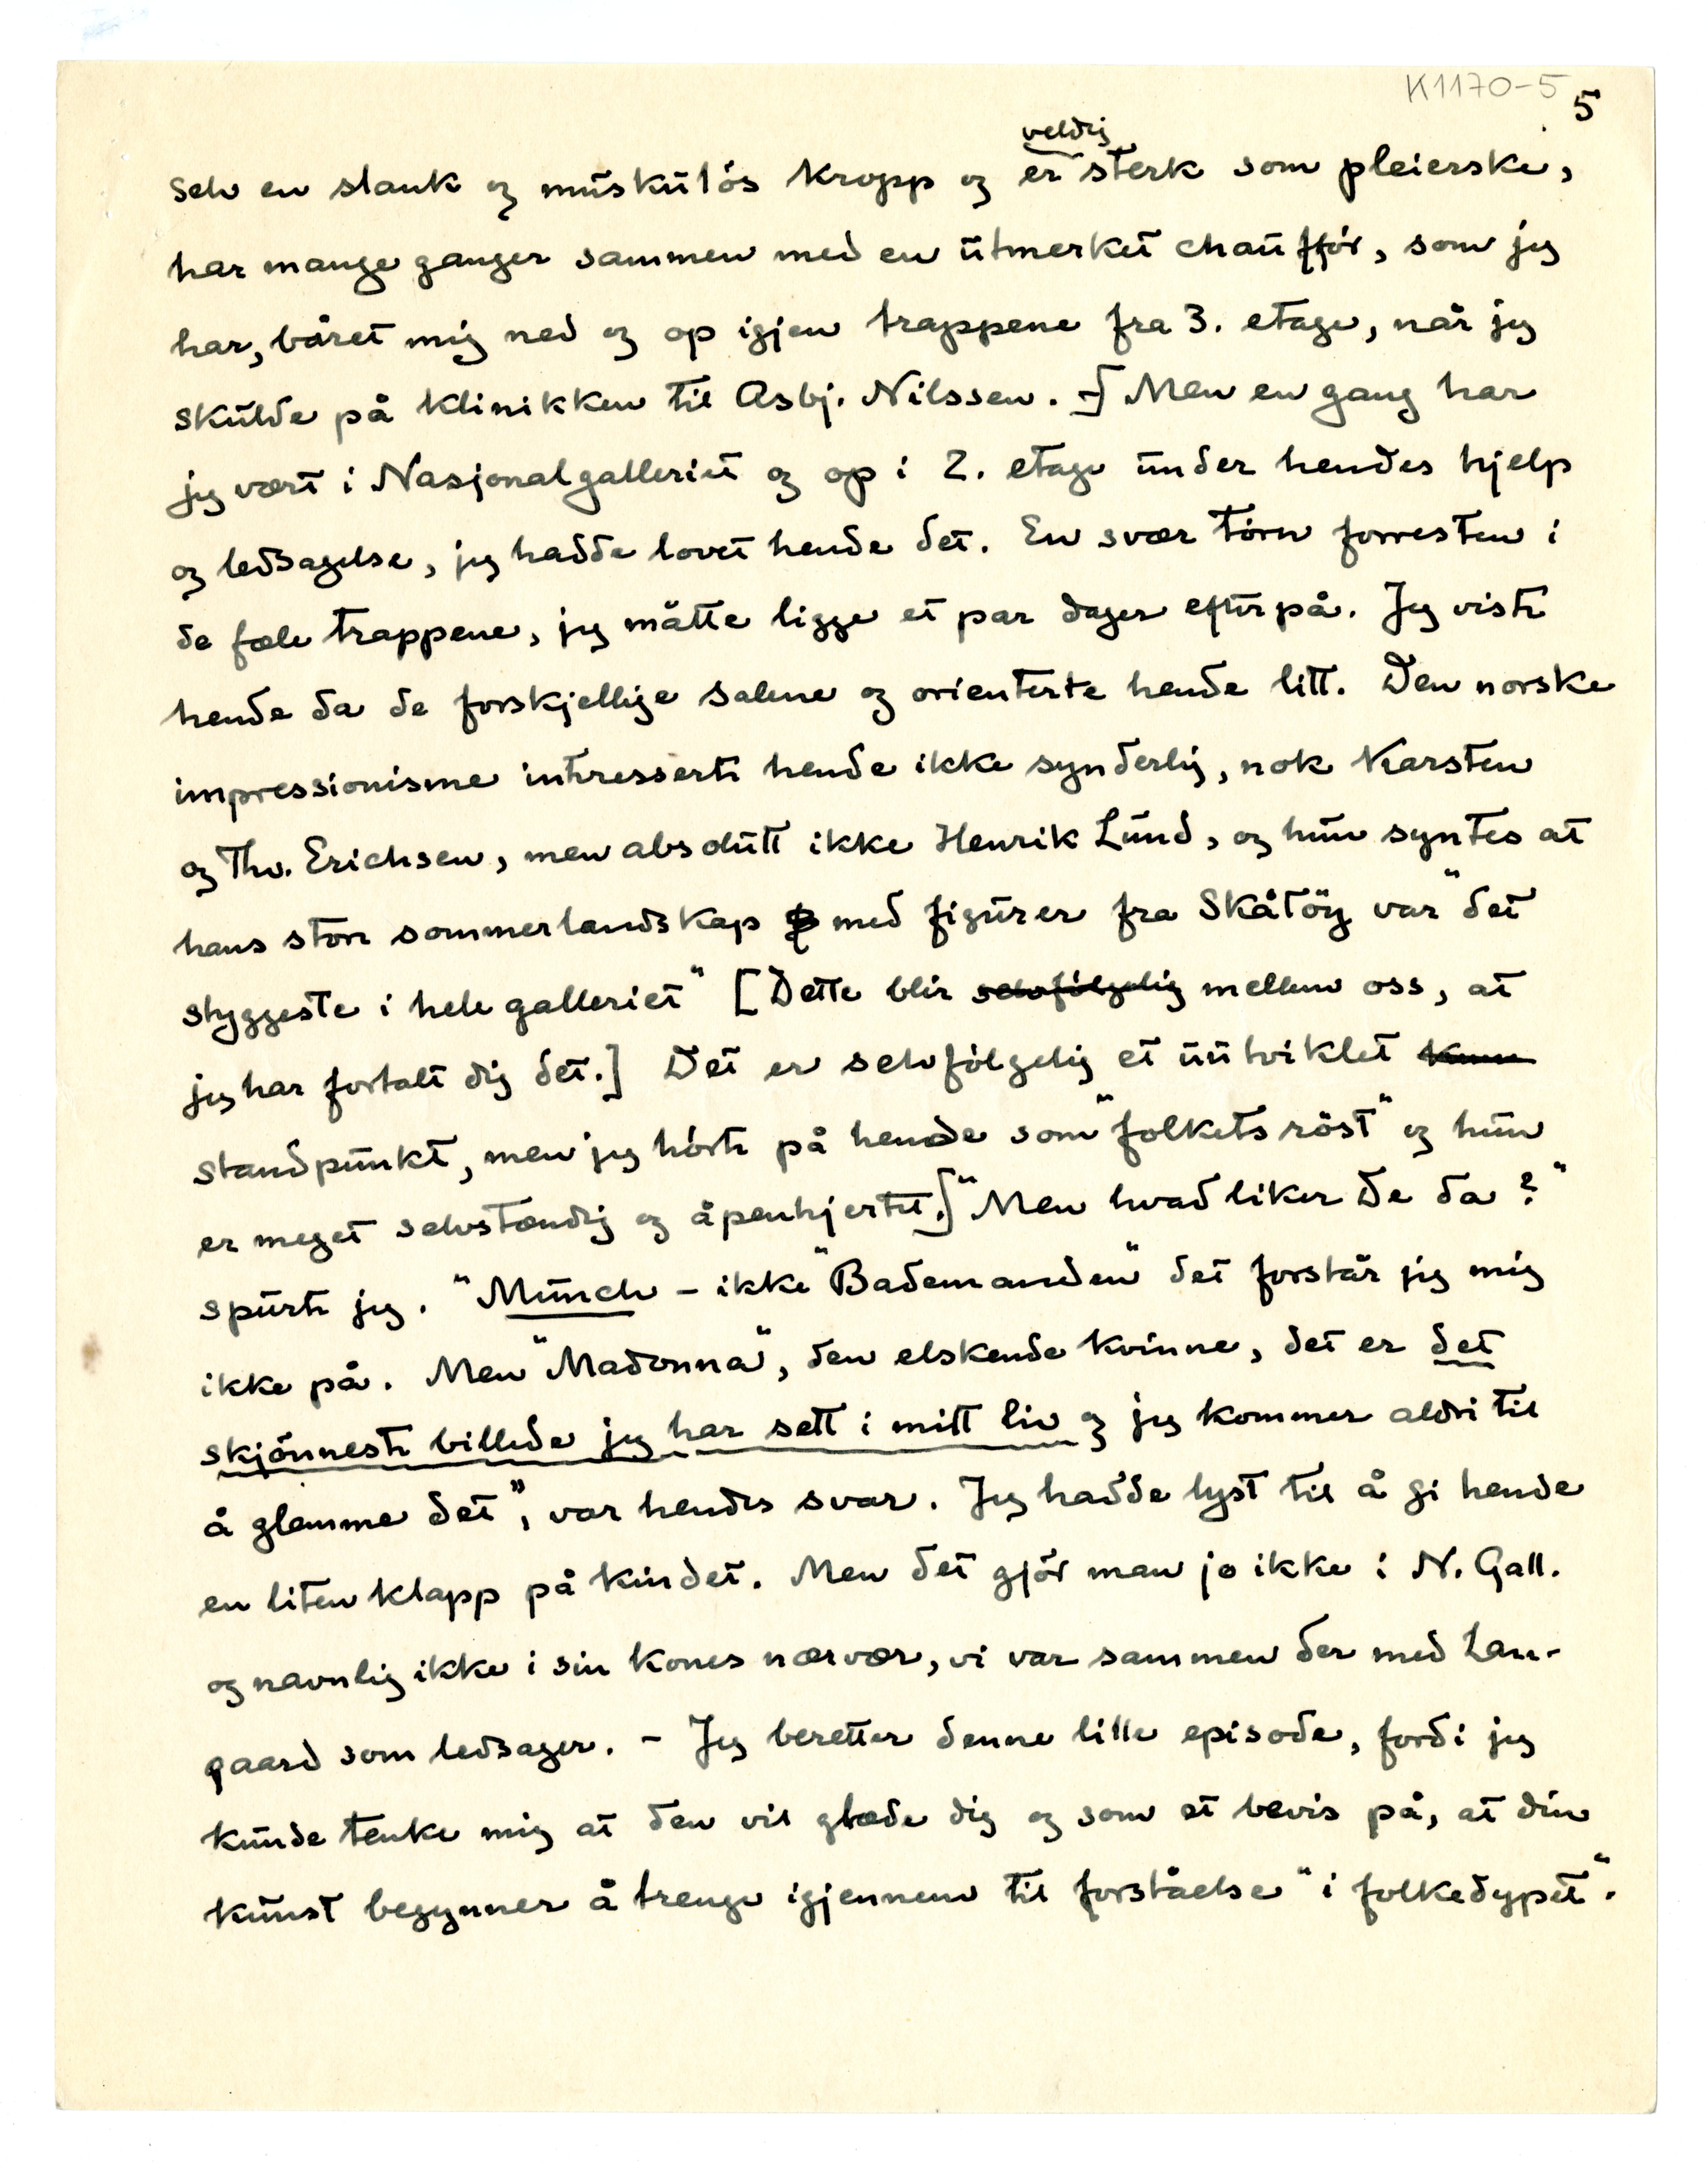 K1170-5
5
veldig
selv en slank og muskuløs kropp og er sterk som pleierske,
har mange ganger sammen med en utmerket chaufför, som jeg
har, båret mig ned og op igjen trappene fra 3. etage, når jeg
skulde på klinikken til Asbj. Nilssen. –] Men en gang har
jeg vært i Nasjonalgalleriet og op i 2. etage under hendes hjelp
og ledsagelse, jeg hadde lovet hende det. En svær törn forresten i
de fæle trappene, jeg måtte ligge et par dager efterpå. Jeg viste
hende da de forskjellige salene og orienterte hende litt. Den norske
impressionisme interesserte hende ikke synderlig, nok Karsten
og Thv. Erichsen, men absolutt ikke Henrik Lund, og hun syntes at
hans store sommerlandskap med figurer fra Skåtöy var "det
styggeste i hele galleriet" [Dette blir selvfölgelig mellem oss, at
jeg har fortalt dig det.] Det er selvfölgelig et uutviklet
standpunkt, men jeg hörte på hende som "folkets röst" og hun
er meget selvstændig og åpenhjertet.] "Men hvad liker De da?"
spurte jeg. "Munch – ikke "Bademanden" det forstår jeg mig
ikke på. Men "Madonna", den elskende kvinne, det er det
skjönneste billede jeg har sett i mitt liv og jeg kommer aldri til
å glemme det", var hendes svar. Jeg hadde lyst til å gi hende
en liten klapp på kindet. Men det gjör man jo ikke i N. Gall.
og navnlig ikke i sin kones nærvær, vi var sammen der med Lan-
gaard som ledsager. – Jeg beretter denne lille episode, fordi jeg
kunde tenke mig at den vil glæde dig og som et bevis på, at din
kunst begynner å trenge igjennem til forståelse "i folkedypet".